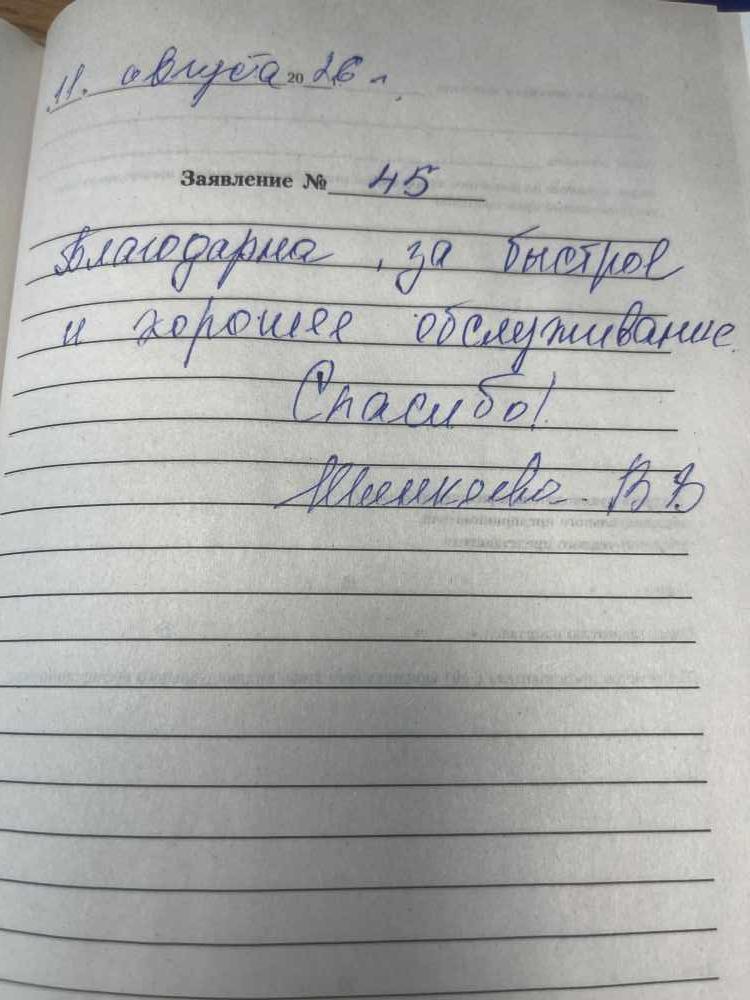 11. августа 2026 г.
Заявление № 45
Благодарна, за быстрое
и хорошее обслуживание.
Спасибо!
В В